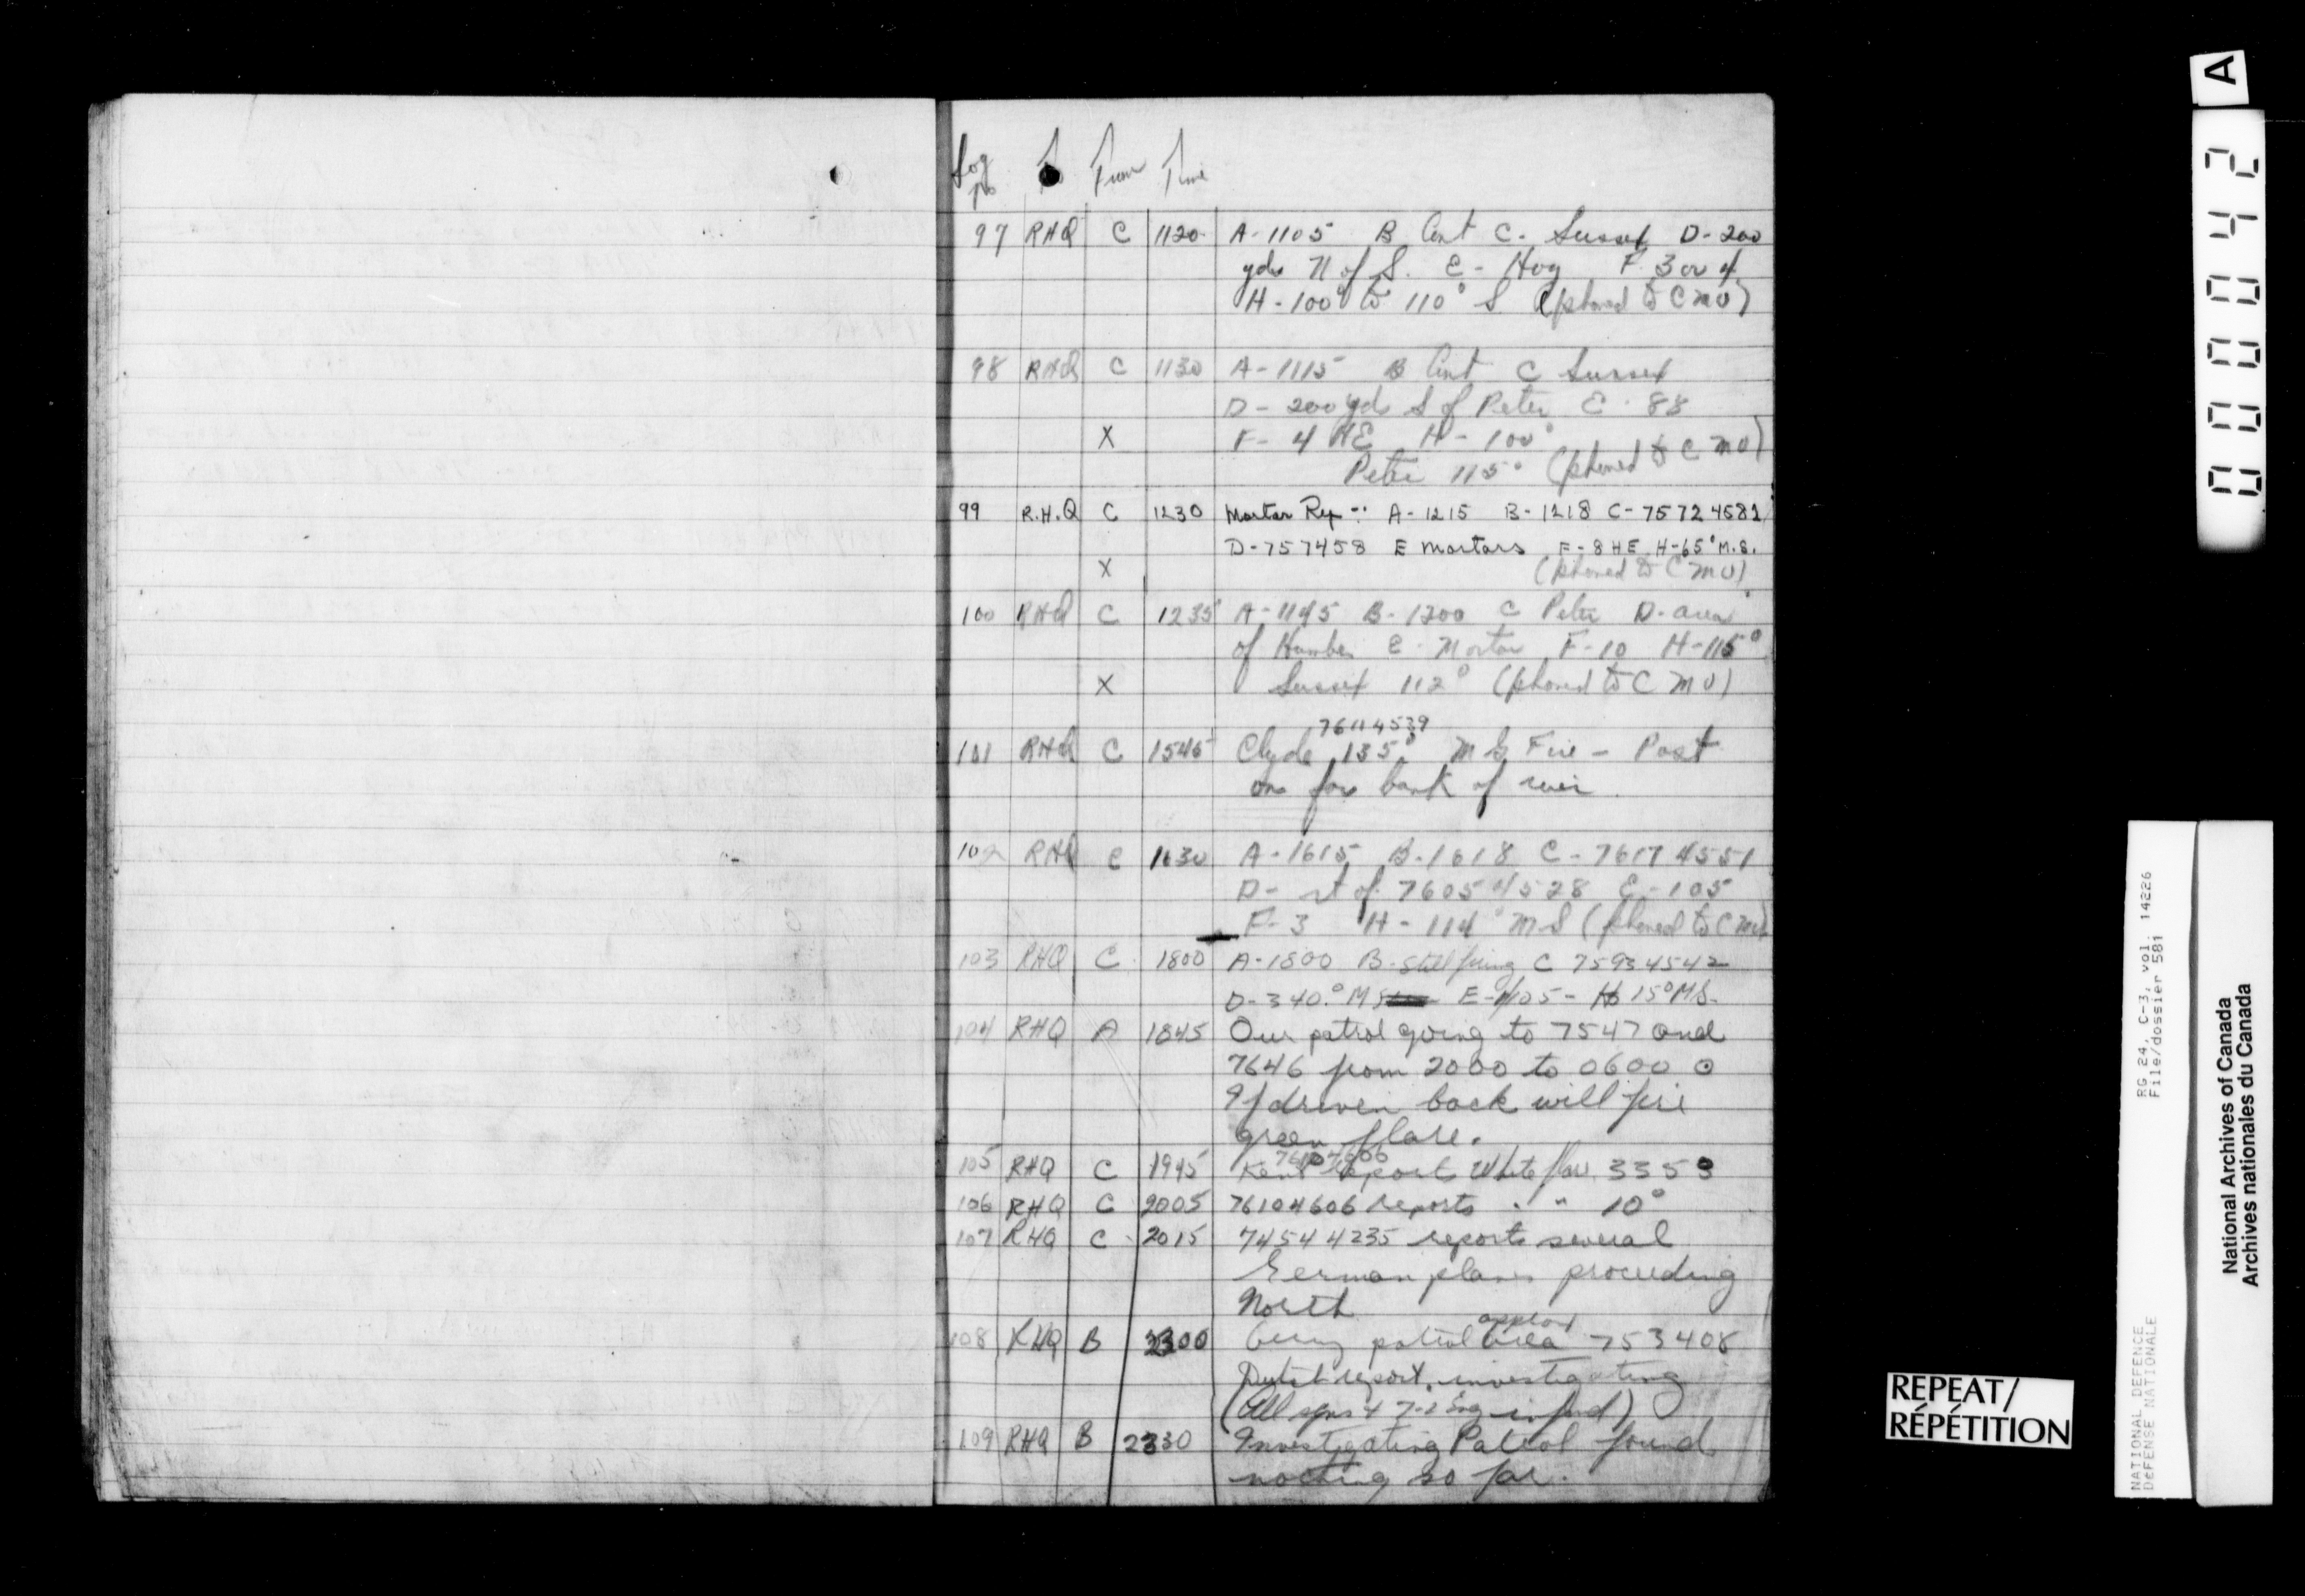 Log No To From Time
97 RHQ C 1120 A-1105 B Cont C- Sussex D-200
yds N of S. E- Hvy F. 3 or 4
H-100° to 110° S (phoned to CMO)
98 RHQ C 1130 A-1115 B Cont C Sussex
D- 200 yds S of Peter E. 88
X F- 4 HE H- 100°
Peter 115° (phoned to CMO)
99 R.H.Q C 1230 Mortar Rep -: A-1215 B-1218 C-75724582
D-757458 E mortars F-8HE H-65° M.S.
X (phoned to CMO)
100 RHQ C 1235 A-1145 B-1200 C Peter D-area
of Humber E. Mortar F-10 H-115°
X Sussex 112° (phoned to CMO)
76114539
101 RHQ C 1545 Clyde 135° MG Fire - Post
on far bank of river
102 RHQ C 1630 A-1615 B-1618 C-76174551
D- rt of 76054528 E-105
F-3 H-114° MS (phoned to CMO)
103 RHQ C 1800 A-1800 B-Still firing C 75934542
D-340.° MS E-105- H 15° MS.
104 RHQ A 1845 Our patrol going to 7547 and
7646 from 2000 to 0600
If driven back will fire
green flare.
76104606
105 RHQ C 1945 Kent reports White flare 335
106 RHQ C 2005 76104606 reports " " 10°
107 RHQ C 2015 74544235 reports several
German planes proceeding
North
approx
108 RHQ B 2300 patrol area 753408
Dutch report, investigating
(All sqns & infmd)
109 RHQ B 2330 Investigating Patrol found
nothing so far.
A
000042
RG 24, C-3, vol. 14226
File/dossier 581
NATIONAL DEFENCE
DÉFENSE NATIONALE
National Archives of Canada
Archives nationales du Canada
REPEAT/
RÉPÉTITION